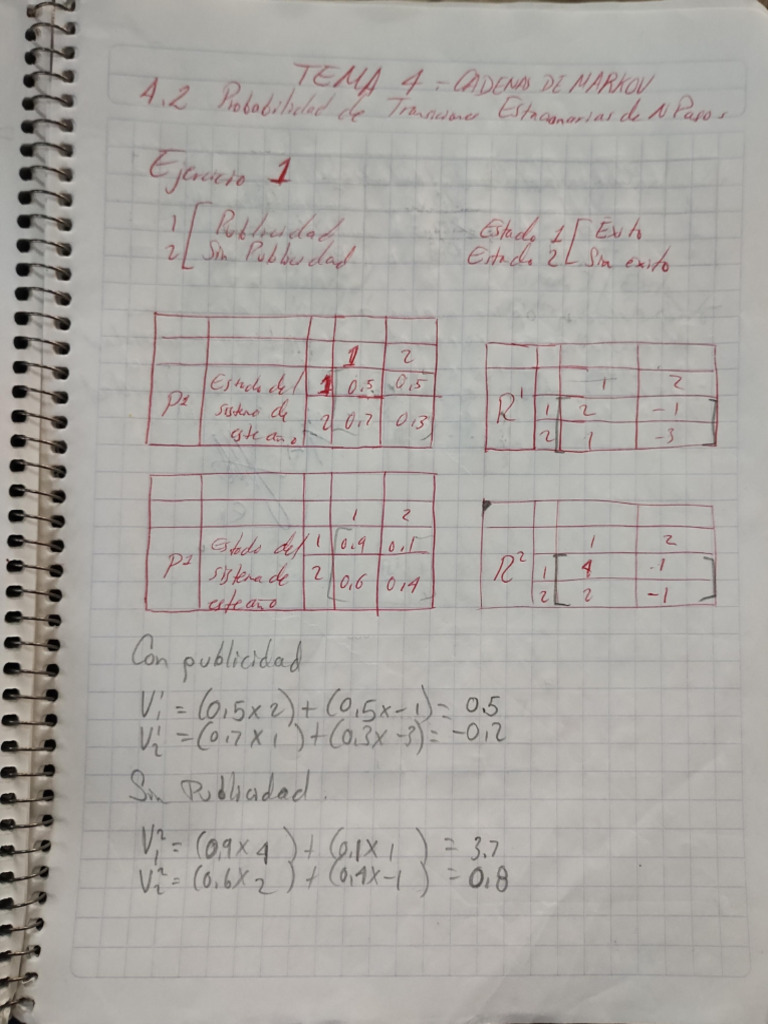 TEMA 4 - CADENAS DE MARKOV
4.2 Probabilidad de Transiciones Estacionarias de N Pasos
Ejercicio 1
1 [ Publicidad
2 [ Sin Publicidad
Estado 1 [ Exito
Estado 2 [ Sin exito
1 2
P1 Estado del sistema de este año
1 0.5 0.5
2 0.7 0.3
1 2
R1 1 2 -1
2 1 -3
1 2
P1 Estado del sistema de este año
1 0.9 0.1
2 0.6 0.4
1 2
R2 1 4 1
2 2 -1
Con publicidad
V₁¹ = (0.5x2)+(0.5x-1)= 0.5
V₂¹ =(0.7x1)+(0.3x-3)= -0.2
Sin Publicidad.
V₁² = (0.9x4)+(0.1x1) = 3.7
V₂² = (0.6x2)+(0.4x-1) = 0.8